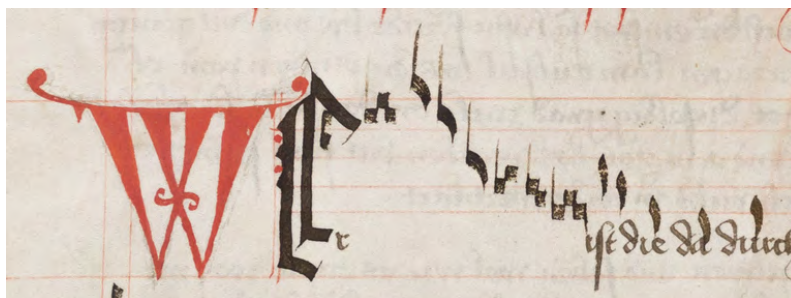 WEr ist die da durch